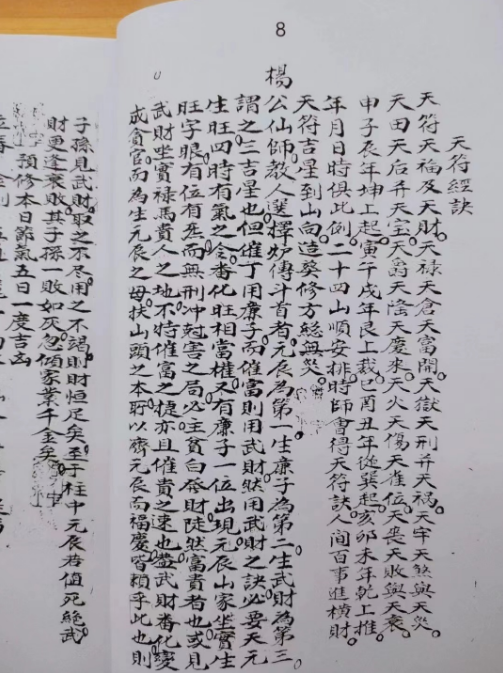 8
天符經訣
天符天福及天財天祿天倉天富開天獄天刑并天禍天牢天煞與天災
天田天后并天宝天爵天隂天慶来天火天傷天雀位天喪天敗與天衰
申子辰年坤上起寅午戌年艮上裁巳酉丑年従巽起亥卯未年乾上推
年月日時俱此例二十四山順安排時師會得天符訣人間百事進横財
天符吉星到山向造葬修方総無災
楊公仙師教人選擇炉傳斗首者元辰為第一生廉子為第二生武財為第三
謂之三吉星也但催丁用廉子而催富則用武財然用武財之訣必要天元
生旺四時有氣之令畨化旺相當權又有廉子一位出現元辰山家坐實生
旺字眼有位有庄而無刑冲尅害之局必主貧白發財陡然富貴者也或見
武財坐實禄馬貴人之地不特催富之捷亦且催貴之速也葢武財畨化變
成貪官而為生元辰之母扶山頭之本所以齊元辰而福慶皆頼乎此也則
子孫見武財取之不尽用之不竭則財恒足矣至于柱中元辰若值死絶武
財更逢衰敗其子孫一敗如灰忽傾家業千金矣
預修本日節氣五日一度吉凶